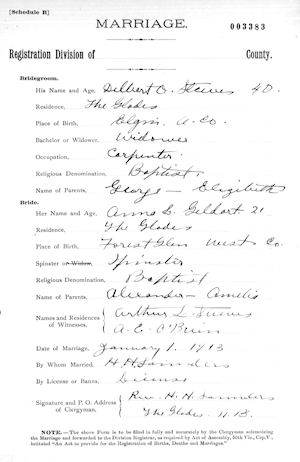 [Schedule B]
MARRIAGE. 003383
Registration Division of County.
Bridegroom.
His Name and Age, Delbert O. Steeves 40
Residence, The Glades
Place of Birth, Elgin A. Co.
Bachelor or Widower, Widower
Occupation, Carpenter
Religious Denomination, Baptist
Name of Parents, George — Elizabeth
Bride.
Her Name and Age, Anna E. Geldart 21
Residence, The Glades
Place of Birth, Forest Glen West Co.
Spinster or Widow, Spinster
Religious Denomination, Baptist
Name of Parents, Alexander — Amelia
Names and Residences of Witnesses, Arthur L. Steeves
A. C. O'Brien
Date of Marriage, January 1. 1913
By Whom Married, H H Saunders
By License or Banns, License
Signature and P. O. Address of Clergyman, Rev. H. H. Saunders
The Glades N.B.
NOTE.—The above Form is to be filled in fully and accurately by the Clergyman solemnizing
the Marriage and forwarded to the Division Registrar, as required by Act of Assembly, 50th Vic., Cap. V.,
intituled "An Act to provide for the Registration of Births, Deaths and Marriages."